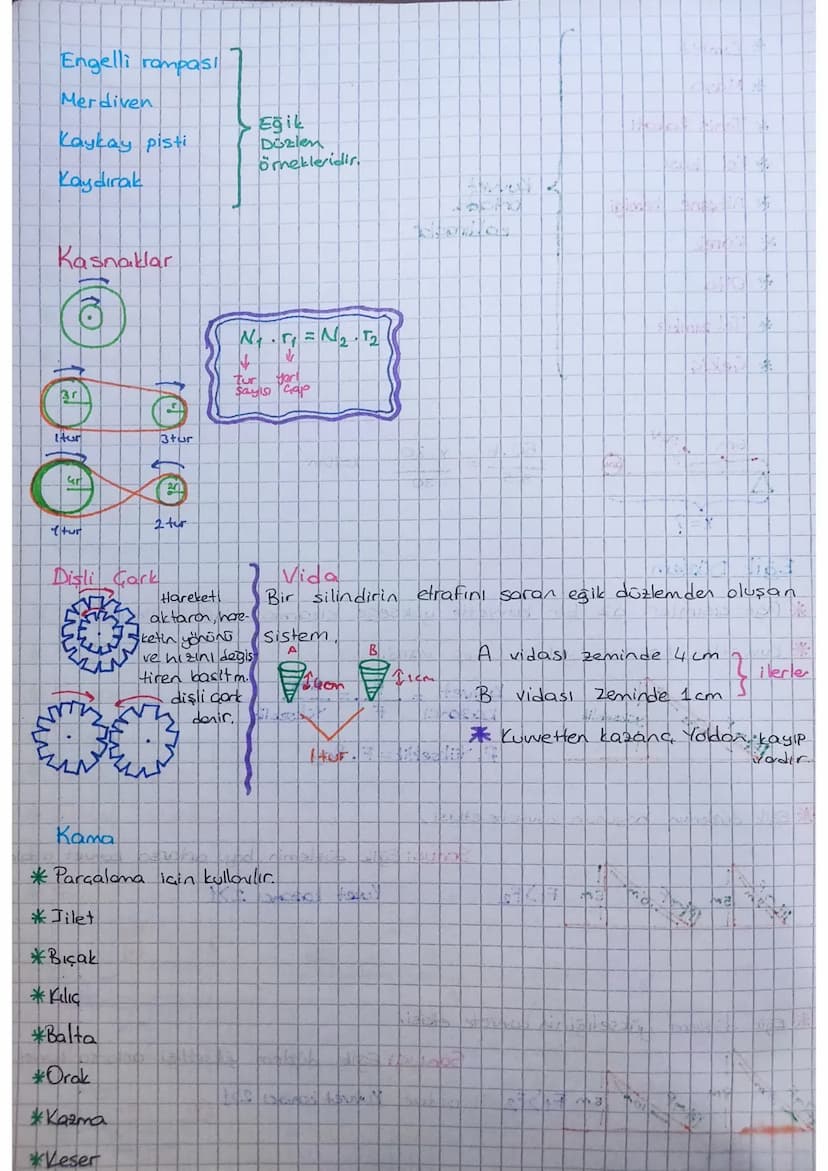 Engelli rampası
Merdiven
Kaykay pisti
Kaydırak
Eğik
Düzlem
örnekleridir.
Kasnaklar
N1 . r1 = N2 . r2
Tur
sayısı
yarı
çap
3r
r
1 tur
3 tur
4r
2r
1 tur
2 tur
Dişli Çark
Hareketi
aktaran, hare-
ketin yönünü
ve hızını değiş
tiren basit m.
dişli çark
denir.
Vida
Bir silindirin etrafını saran eğik düzlemden oluşan
sistem.
A
B
4cm
1cm
1 tur.
A vidası zeminde 4 cm
B vidası zeminde 1 cm
ilerler
* Kuvvetten kazanç, Yoldan kayıp
vardır.
Kama
* Parçalama için kullanılır.
* Jilet
* Bıçak
* Kılıç
* Balta
* Orak
* Kazma
* Keser